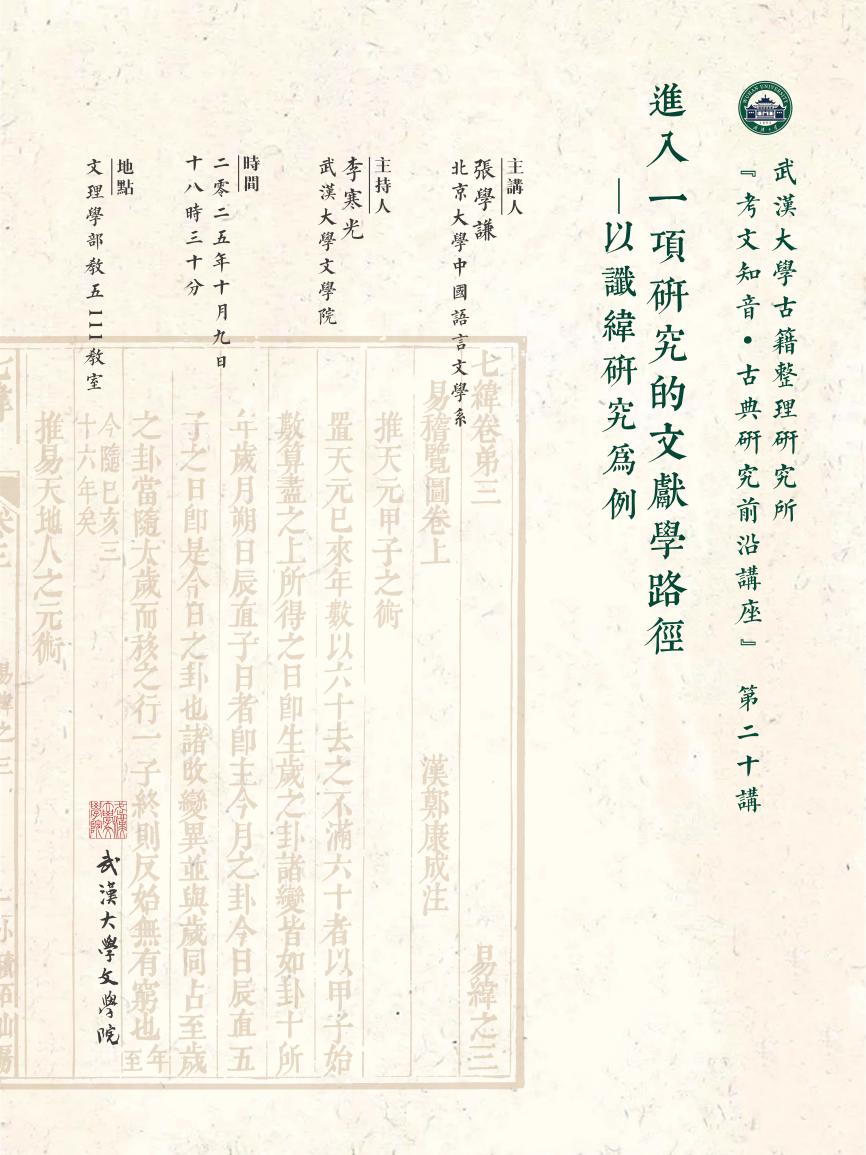 WUHAN UNIVERSITY
武漢大學古籍整理研究所
『考文知音·古典研究前沿講座』 第二十講
進入一項研究的文獻學路徑
—以讖緯研究爲例
主講人
張學謙
北京大學中國語言文學系
主持人
李寒光
武漢大學文學院
時間
二零二五年十月九日
十八時三十分
地點
文理學部教五111教室
七緯卷弟三 易緯之三
易稽覽圖卷上 漢鄭康成注
推天元甲子之術
置天元已來年數以六十去之不滿六十者以甲子始
數算盡之上所得之日卽生歲之卦諸變皆如卦十所
年歲月朔日辰直子日者卽主今月之卦今日辰直五
子之日卽是今日之卦也諸改變異並與歲同占至歲
之卦當隨太歲而移之行一子終則反始無有窮也 至年
今隨巳亥三
十六年矣
推易天地人之元術
武漢大學文學院